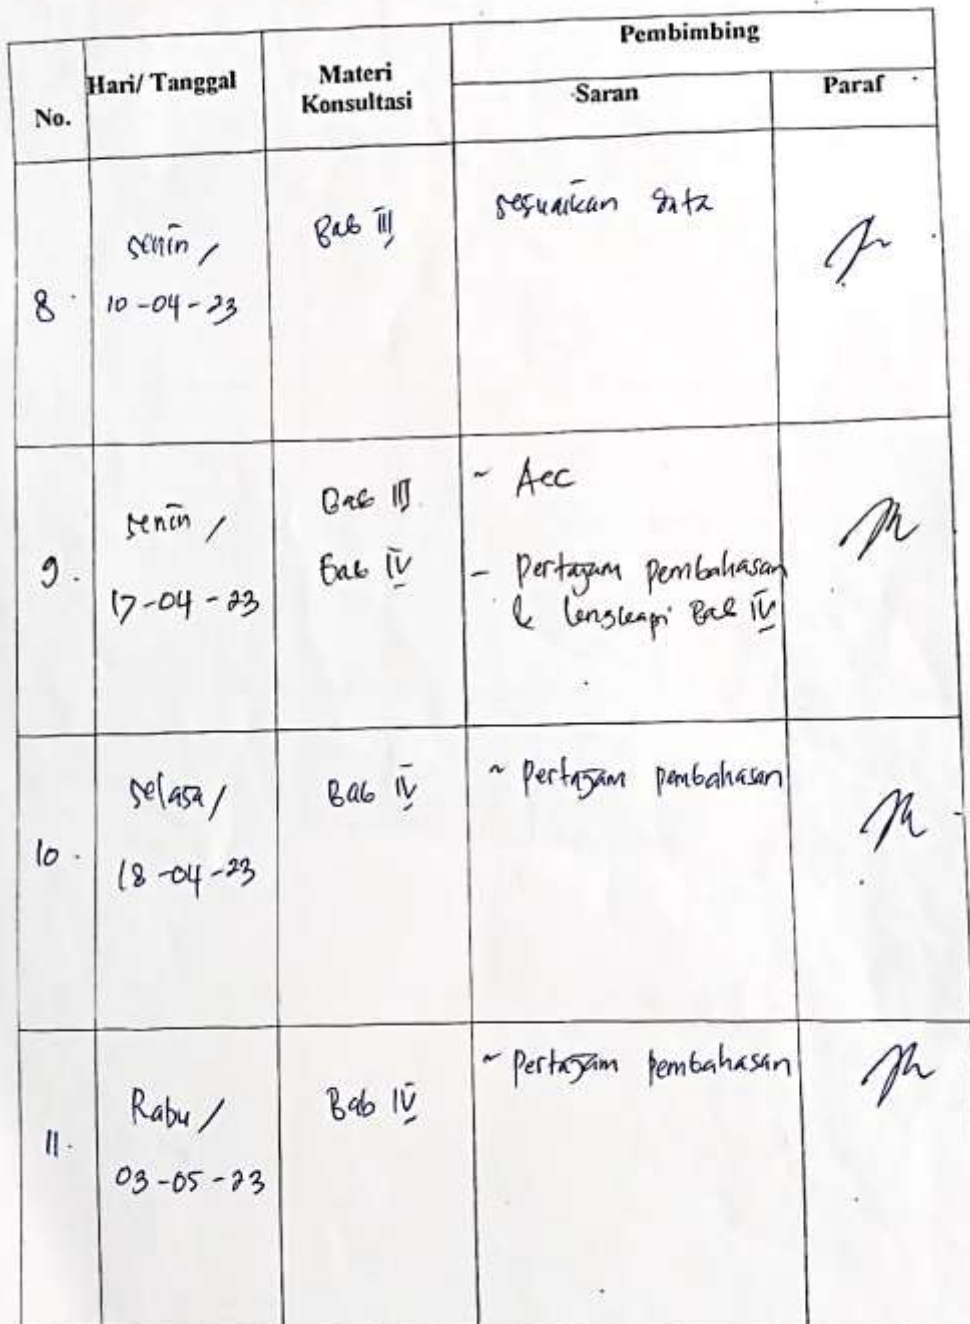 No.
Hari/ Tanggal
Materi
Konsultasi
Pembimbing
Saran
Paraf
8.
senin /
10-04-23
Bab III
sesuaikan data
9.
senin /
17-04-23
Bab III
Bab IV
~ Acc
- Pertajam pembahasan
& lengkapi Bab IV
10.
selasa /
18-04-23
Bab IV
~ Pertajam pembahasan
11.
Rabu /
03-05-23
Bab IV
~ Pertajam pembahasan